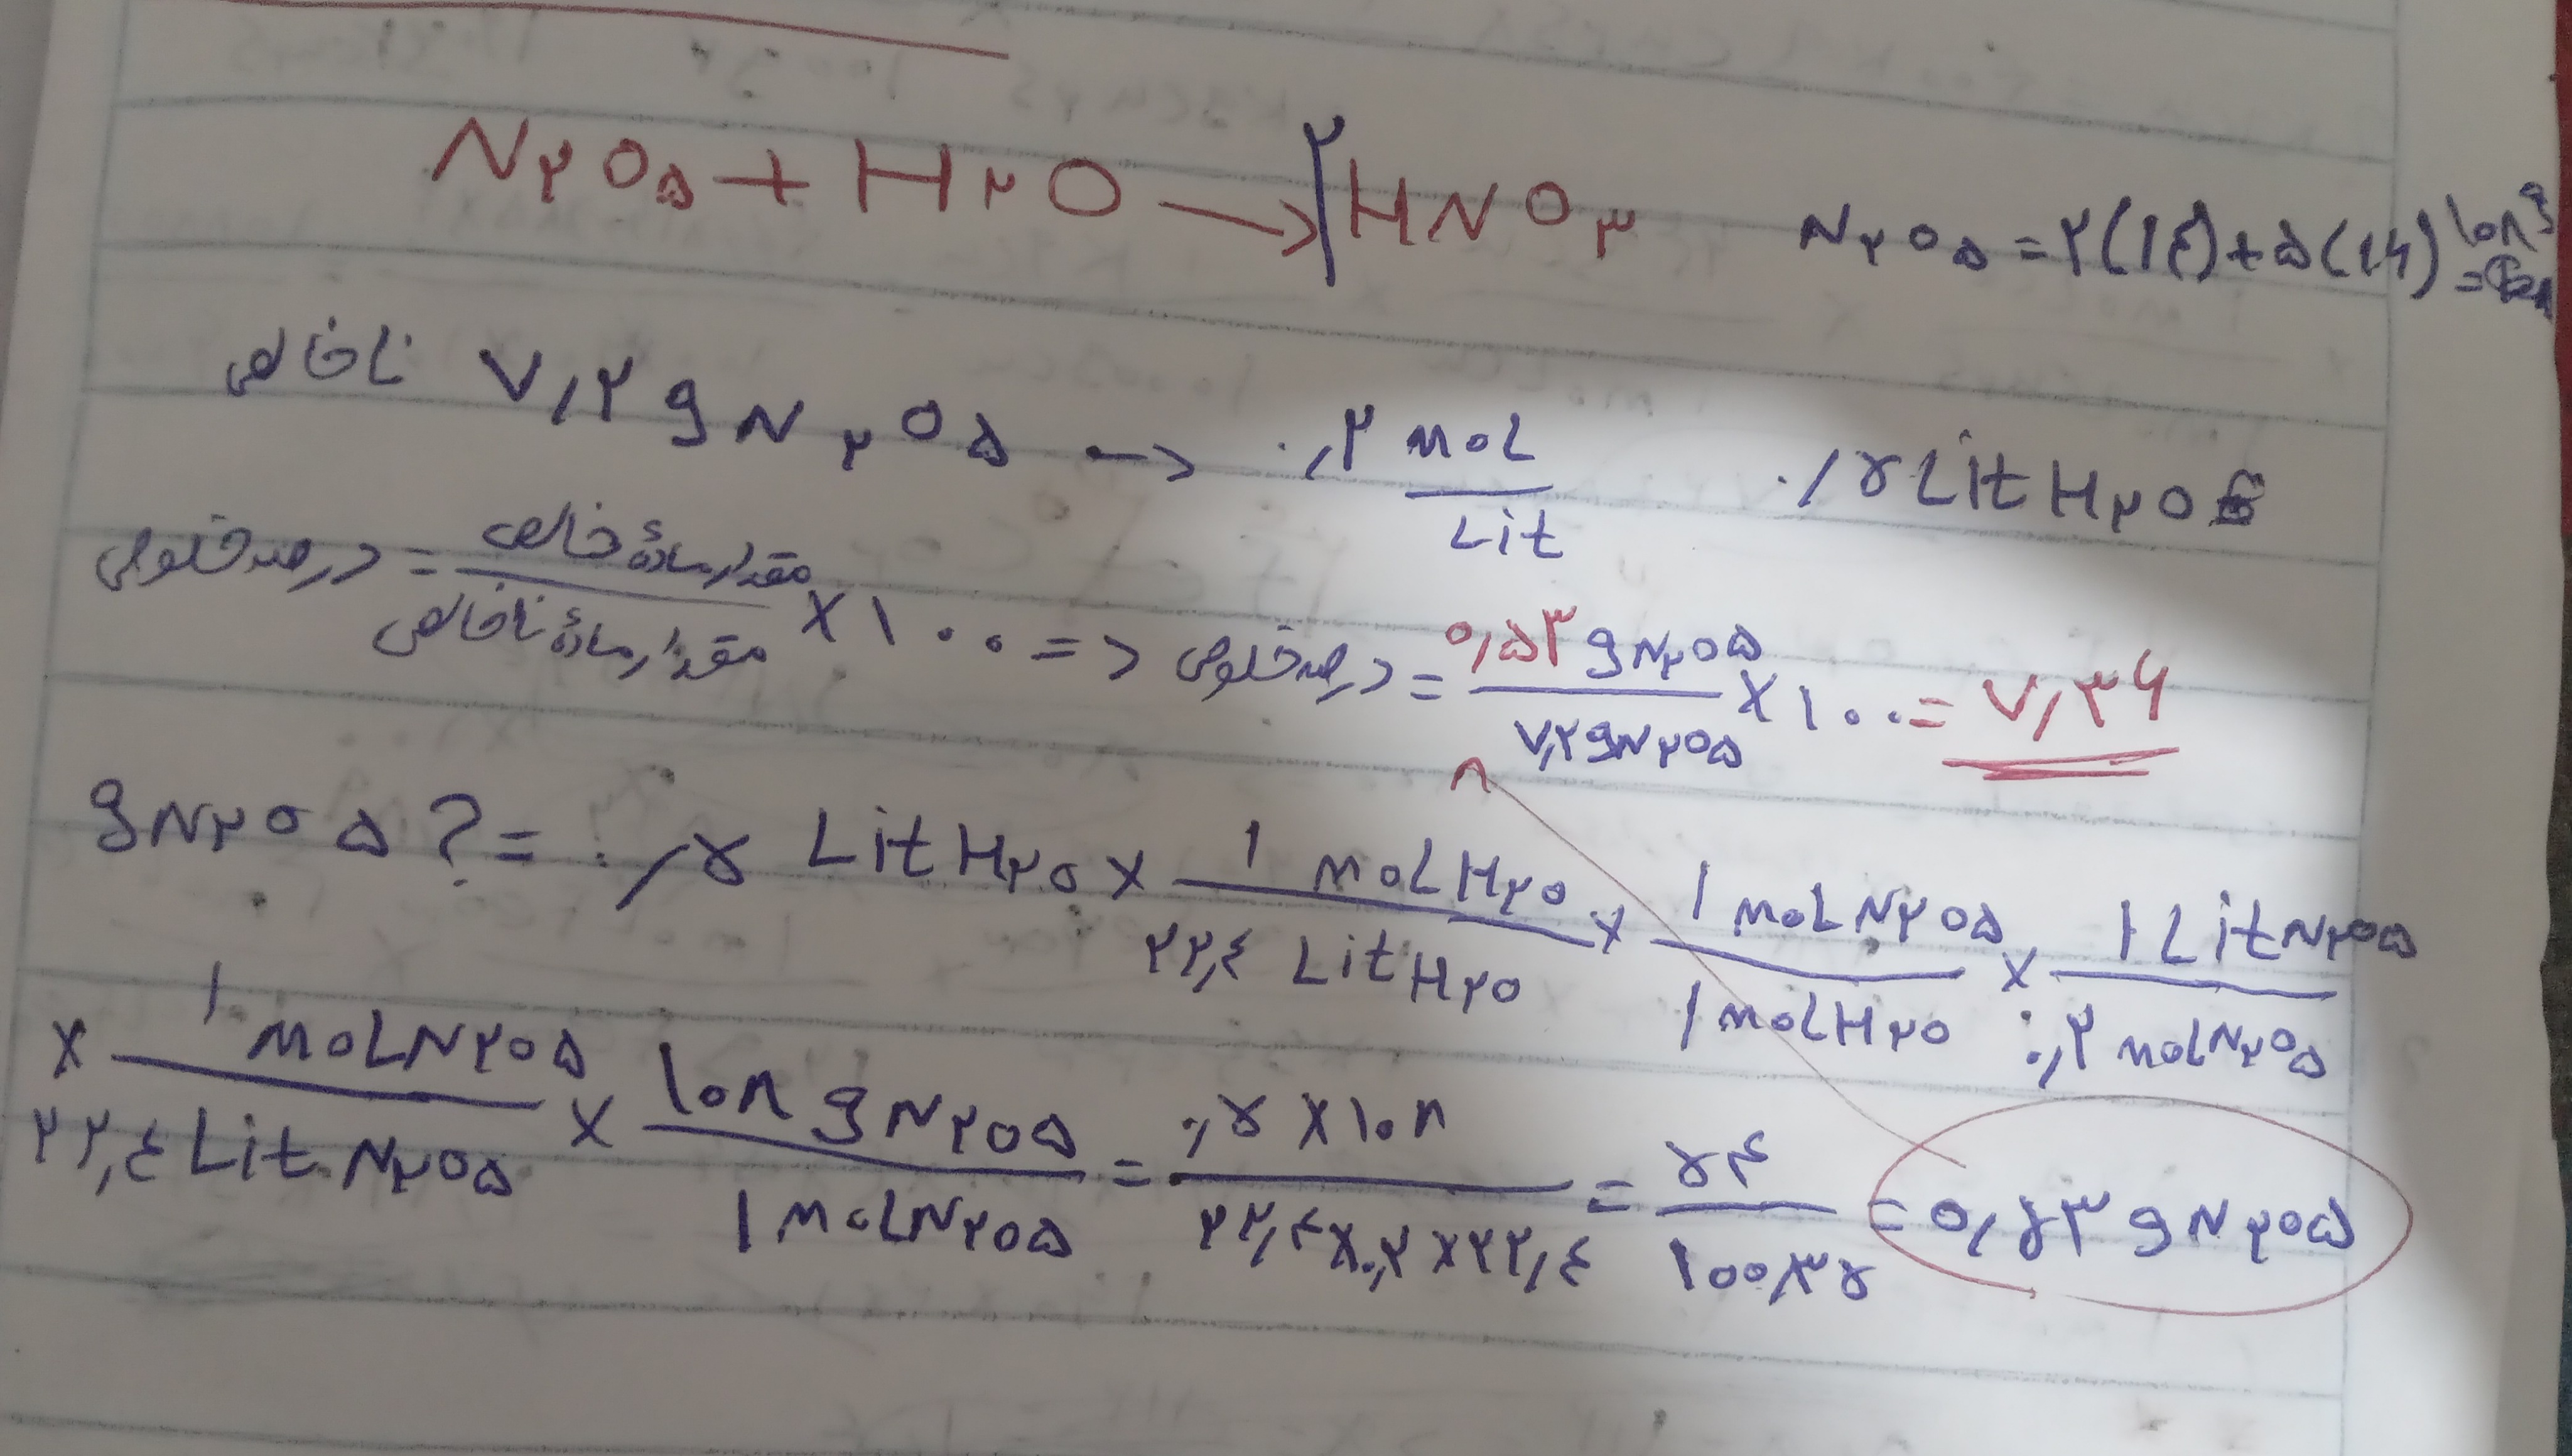 N۲O۵ + H۲O → ۲HNO۳
N۲O۵ = ۲(۱۴) + ۵(۱۶) = ۱۰۸g
ناخالص ۷,۲ g N۲O۵ → ۰,۲ moL/Lit ۰,۵ Lit H۲O
درصد خلوص = مقدار مادهٔ خالص / مقدار مادهٔ ناخالص × ۱۰۰ => درصد خلوص = ۰,۵۳ g N۲O۵ / ۷,۲ g N۲O۵ × ۱۰۰ = ۷,۳۶
g N۲O۵ ? = ۰,۵ Lit H۲O × ۱ moL H۲O / ۲۲,۴ Lit H۲O × ۱ moL N۲O۵ / ۱ moL H۲O × ۱ Lit N۲O۵ / ۰,۲ moL N۲O۵
× ۱ moL N۲O۵ / ۲۲,۴ Lit N۲O۵ × ۱۰۸ g N۲O۵ / ۱ moL N۲O۵ = ۰,۵ × ۱۰۸ / ۲۲,۴ × ۰,۲ × ۲۲,۴ = ۵۴ / ۱۰۰,۳۵ = ۰,۵۳ g N۲O۵